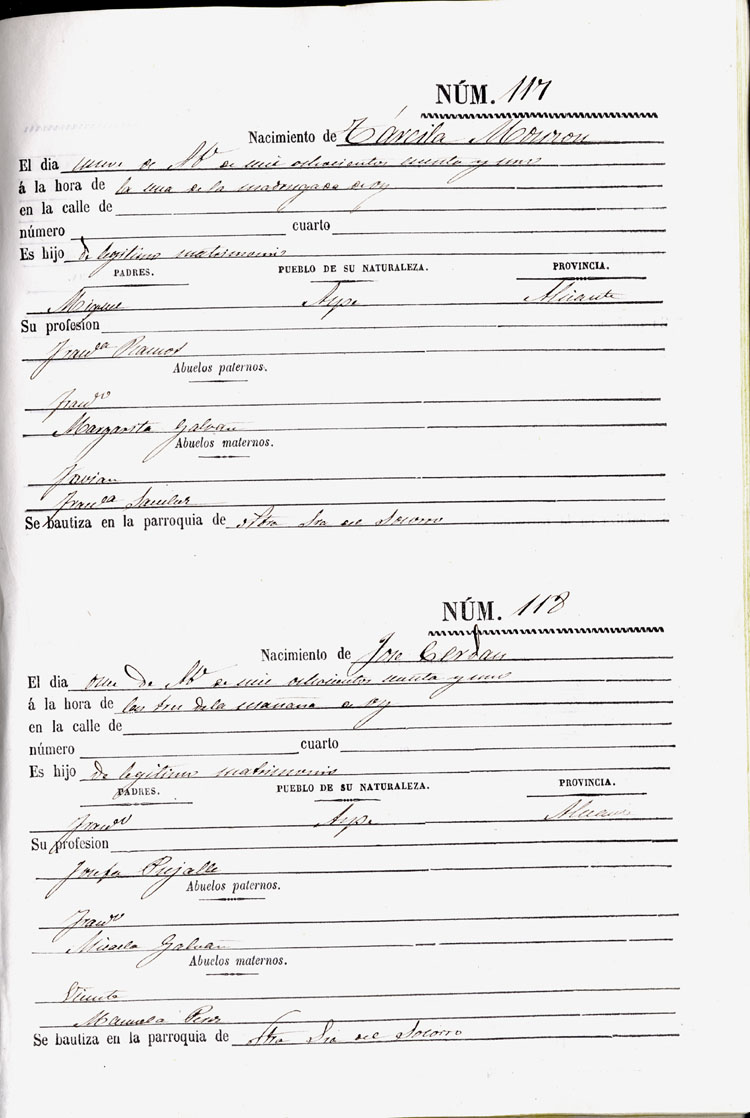 NÚM. 117
Nacimiento de Tárcila Monzon
El dia once de Ab de mil ochocientos sesenta y uno
á la hora de la una de la madrugada de oy
en la calle de
número cuarto
Es hijo de legitimo matrimonio
PADRES. PUEBLO DE SU NATURALEZA. PROVINCIA.
Miguel Aspe Alicante
Su profesion
Franca Ramos
Abuelos paternos.
Franco
Margarita Galvan
Abuelos maternos.
Favian
Franca Sanchez
Se bautiza en la parroquia de Ntra Sra del Socorro
NÚM. 118
Nacimiento de Jose Cerdan
El dia once de Ab de mil ochocientos sesenta y uno
á la hora de las tres de la mañana de oy
en la calle de
número cuarto
Es hijo de legitimo matrimonio
PADRES. PUEBLO DE SU NATURALEZA. PROVINCIA.
Franco Aspe Alicante
Su profesion
Josefa Pujalte
Abuelos paternos.
Franco
Micaela Galvan
Abuelos maternos.
Vicente
Manuela Perez
Se bautiza en la parroquia de Ntra Sra del Socorro